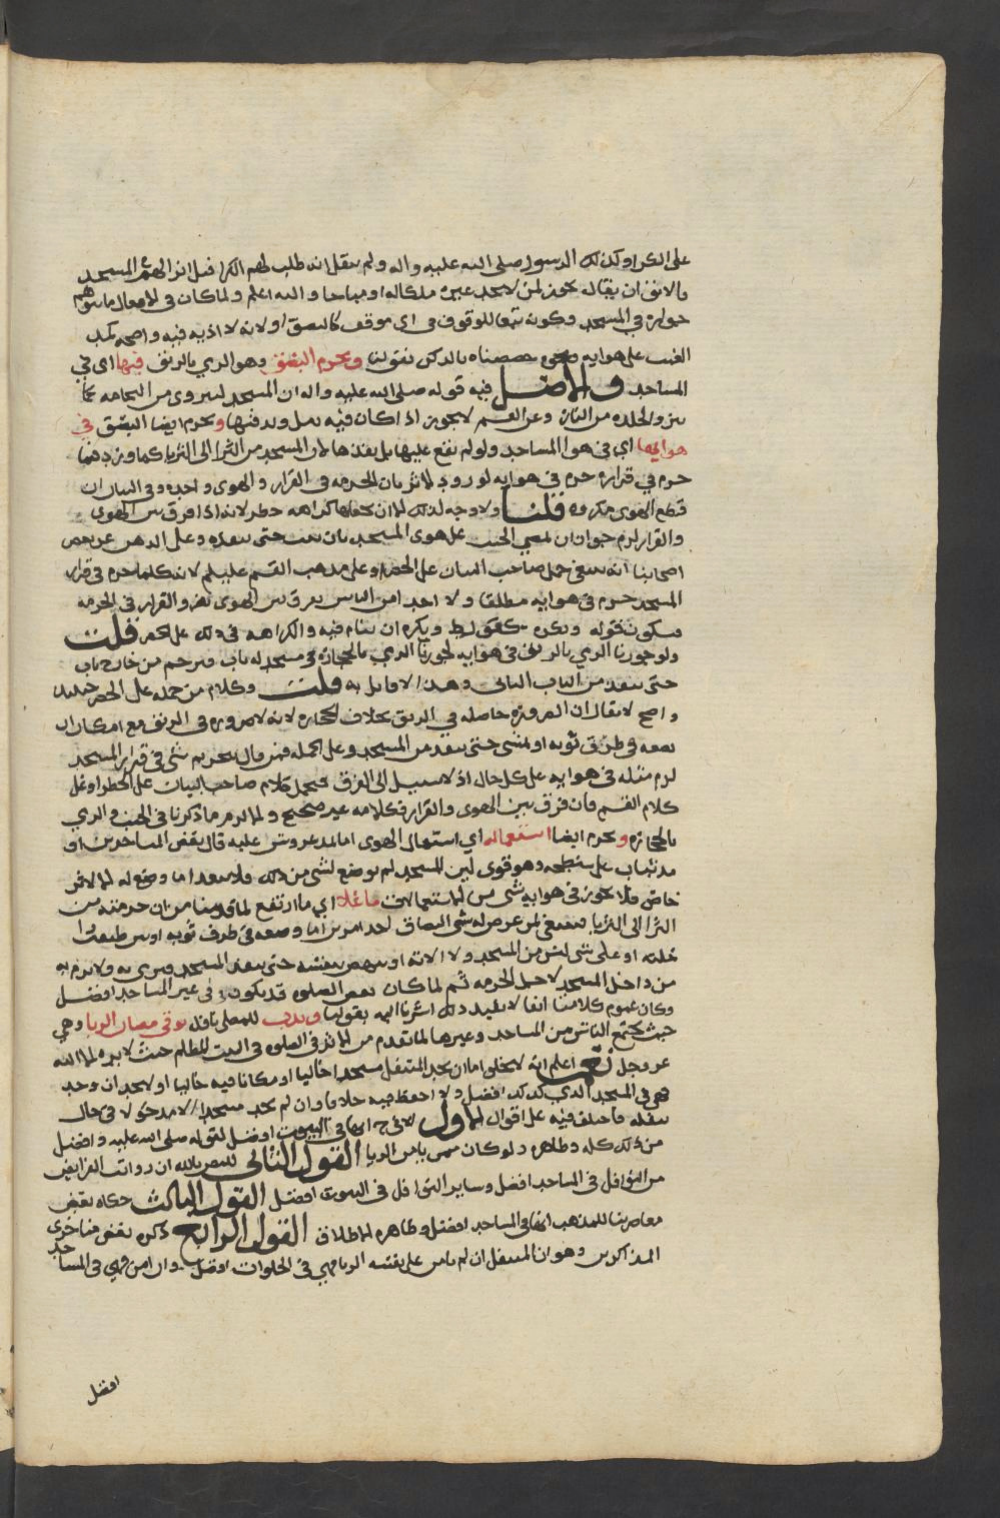 على الكن او كذلك الرسول صلى الله عليه واله ولم ينقل انه طلب لهم الكرا قيل انز الهم المسجد
بالاتفاق ان يقال يجوز لمن لا يجد غيره ملكا له او مباحا والله اعلم ولما كان في الافعال ما يتوهم
جوازه في المسجد وكونه تبعا للوقوف في اي موقف كالبصق او لانه لا اذيه فيه واضحه كمد
الغيب على هوايه خصصناه بالذكر بقولنا ويحرم البصق وهو الرمي بالريق فيها اي في
المساجد والاصل فيه قوله صلى الله عليه واله ان المسجد لينزوي من النخامه كما
تنزوي الجلده من النار وعن القسم لا يجوز اذا كان فيه رمل ويدفنها ويحرم ايضا البصق في
هوايها اي في هوا المساجد ولو لم تقع عليها بل بعدها لان المسجد من الثرا الى الثريا كما ورد فما
حرم في قراره حرم في هوايه لورود الاثر بان الحرمه في القرار والهوى واحده وفي البيان ان
قطع الهوى مكروه قلنا ولا وجه لذلك الا ان يجعلها كراهه حظر لانه اذا فرق بين الهوى
والقرار لزم جواز ان لمضي الجنب على هوى المسجد بان يثب حتى يبعده وعلى الذهن عن بعض
اصحابنا انه ينبغي حمل صاحب البيان على الحظر وعلى مذهب القسم عليلم لانه كلما حرم في قرار
المسجد حرم في هوايه مطلقا ولا احد من الناس يفرق بين الهوى والقرار في الحرمه
فيكون بقوله ويكره كقول ويكره ان ينام فيه والكراهه في ذلك على الحظر قلت
ولو جوزنا الرمي بالريق في هوايه لجوزنا الرمي بالحجاره في مسجد له باب فيرجم من خارج باب
حتى ينفذ من الباب الثاني وهذا لا قايل به قلت وكلام من حمله على الحظر جيد
واضح لا يقال ان الضروره حاصله في الريق بخلاف الحجاره لانه لا ضروره في الريق مع امكان ان
يضعه في طرف ثوبه او يمشي حتى ينفذ من المسجد وعلى الجمله فمن قال بتحريم شي في قرار المسجد
لزم مثله في هوايه على كل حال اذ لا سبيل الى الفرق فيحمل كلام صاحب البيان على الحظر او على
كلام القسم فان فرق بين الهوى والقرار فكلامه غير صحيح والا لزم ما ذكرنا في الجنب والرمي
بالحجاره ويحرم ايضا استعماله اي استعمال الهوى اما لمد عروش عليه قال بعض المتاخرين او
مد ثياب على سطحه وهو قوي لان المسجد لم يوضع لشي من ذلك ولا يعد اما وضع له الا لامر
خاص فلا يجوز في هوايه شي من الاستعمالات ما علا اي ما ارتفع لما قدمنا من ان حرمته من
الثرا الى الثريا فينبغي لمن عرض له شي البصاق احد امرين اما وضعه في طرف ثوبه او بين طبقات
نعله او على شي ليس من المسجد ولا الاته او ينهض بنفسه حتى ينفذ المسجد ويرمى به ولا يرم به
من داخل المسجد لاجل الحرمه ثم لما كان بعض الصلوه قد يكون في غير المساجد افضل
وكان عموم كلامنا انفا لا يفيد ذلك اشرنا اليه بقولنا وندب للمصلي نافله توقي مضان الريا وهي
حيث يجتمع الناس من المساجد وغيرها لما تقدم من الاثر في الصلوه في البيت المظلم حيث لا يراه الا الله
عز وجل نعم اعلم انه لا يخلو اما ان يجد المتنفل مسجدا خاليا او مكانا فيه خاليا او لا يجد ان وجد
فهي في المسجد الذي كذلك افضل ولا احفظ فيه خلافا وان لم يجد مسجدا الا مدخولا في حال
نفله فاختلف فيه على اقوال الاول للاخ ح انها في البيوت افضل لقوله صلى الله عليه وافضل
من ذلك كله وظاهره ولو كان ممن يامن الريا القول الثاني للنصر بالله ان رواتب الفرايض
من النوافل في المساجد افضل وساير النوافل في البيوت افضل القول الثالث حكاه بعض
معاصرينا للمذهب انها في المساجد افضل وظاهره الاطلاق القول الرابع ذكره بعض متاخري
المذاكرين وهو ان المتنفل ان لم يامن على نفسه الريا فهي في الخلوات افضل وان امن فهي في المساجد
افضل